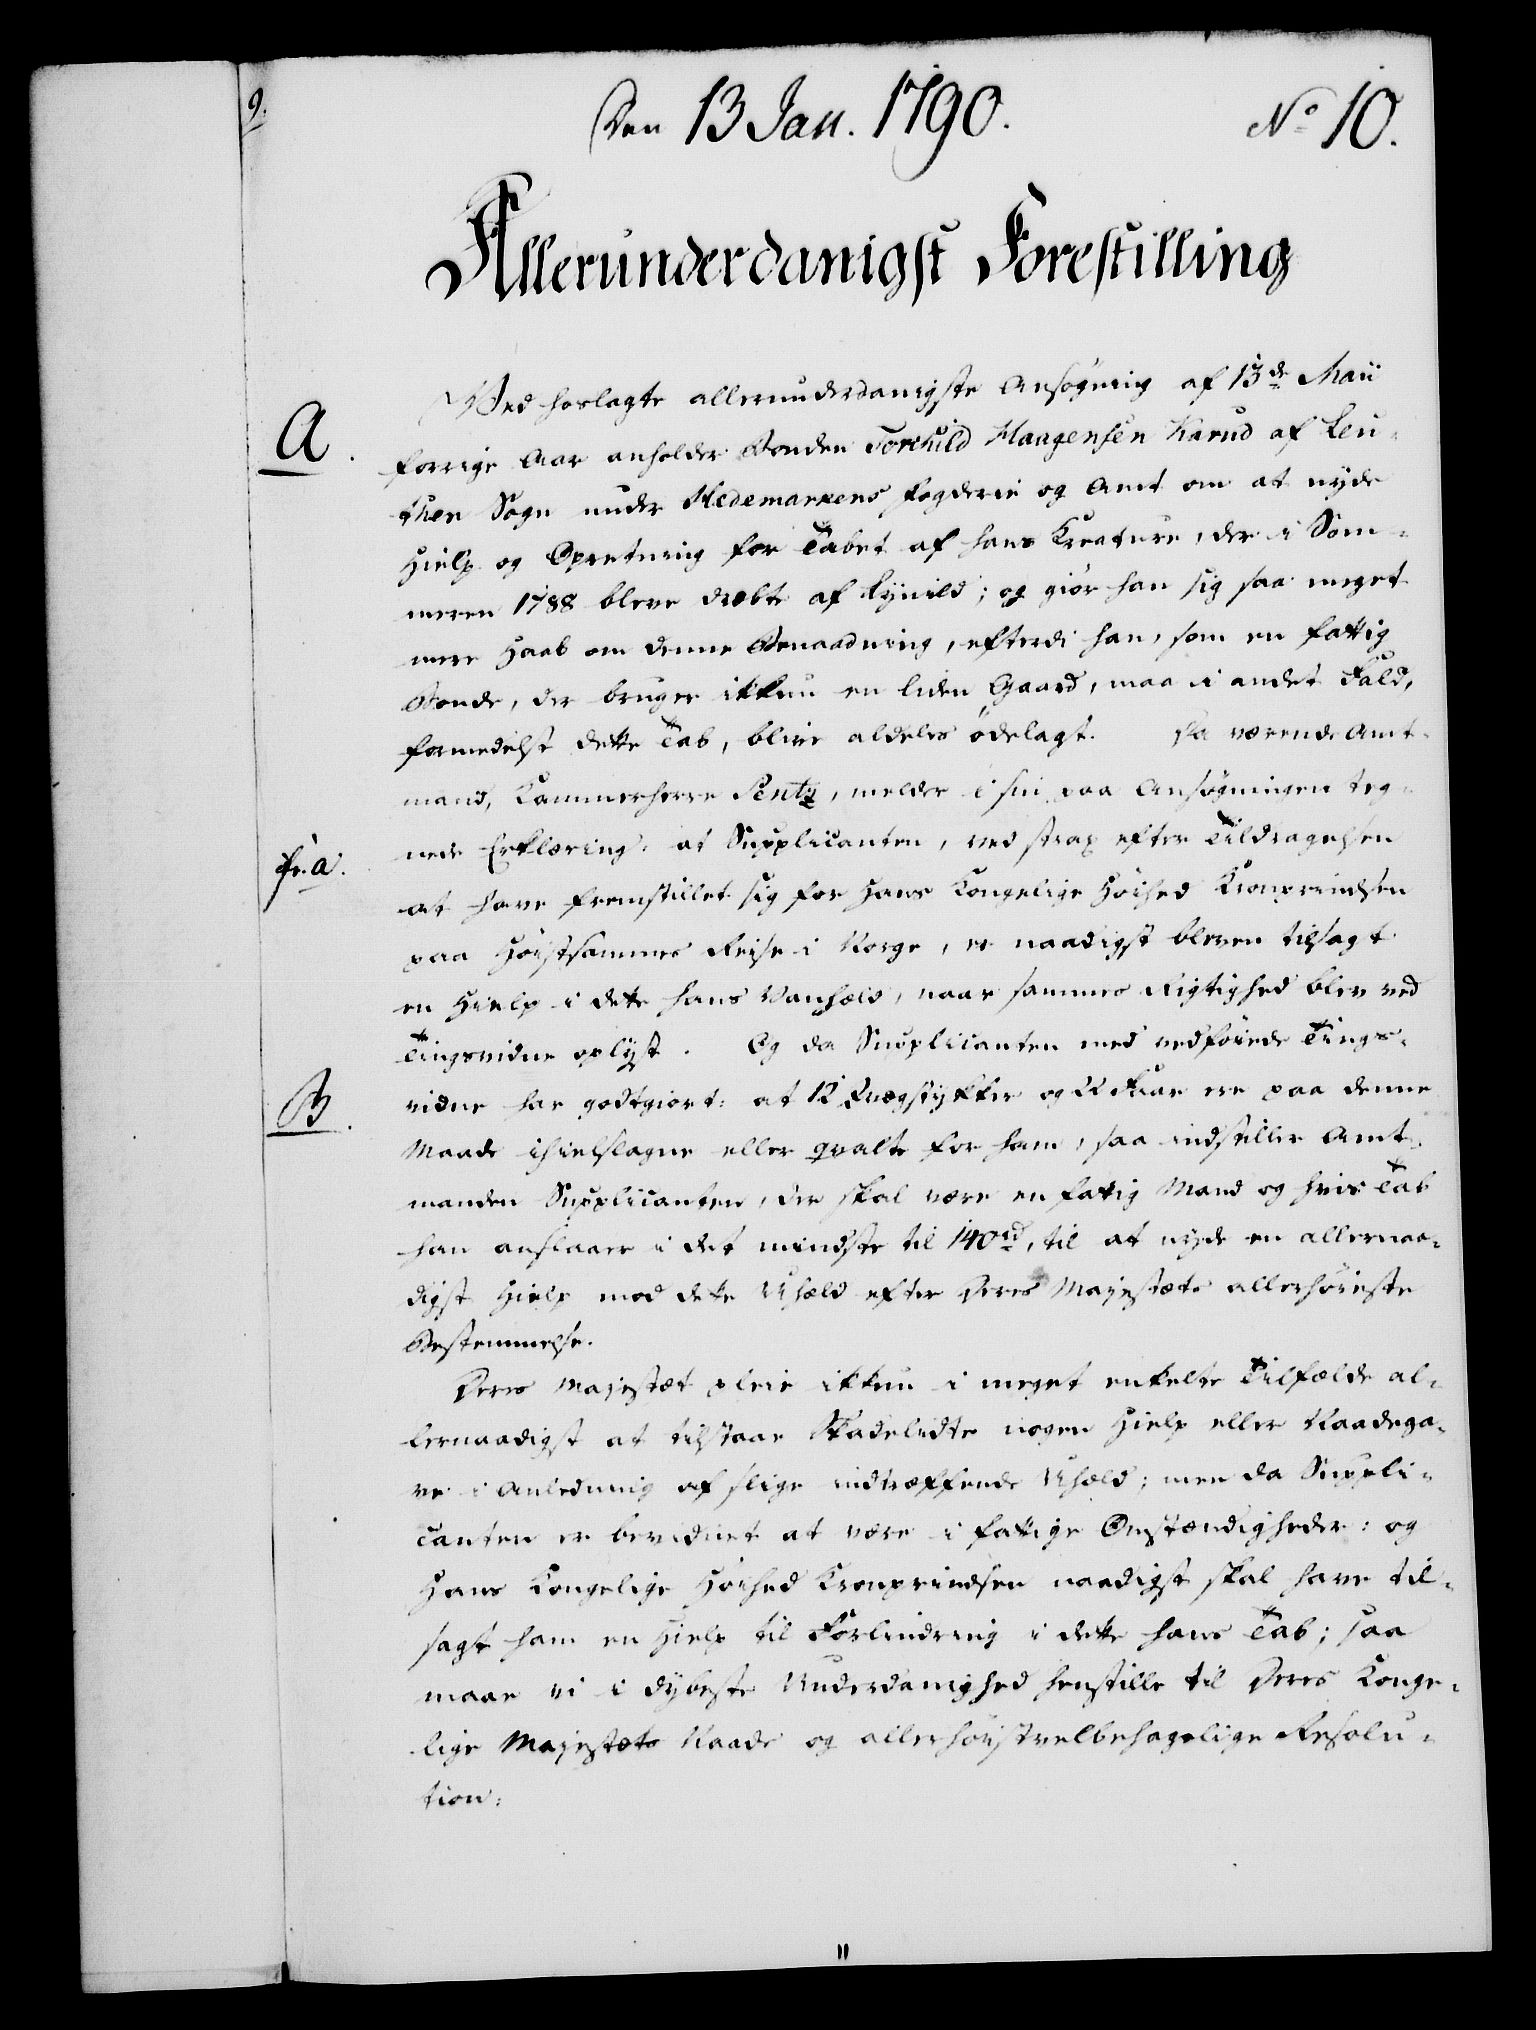 9.
Den 13 Jan. 1790.
No 10.
Allerunderdanigst Forestilling
A.
Ved hoslagte allerunderdanigste Ansøgning af 13de Maii
forrige Aar anholder Bonden Torchild Haagensen Karud af Leu-
then Sogn under Hedemarkens Fogderie og Amt om at nyde
Hielp og Opretning for Tabet af hans Kreature, der i Som-
meren 1788 bleve dræbte af Lynild; og giør han sig saa meget
mere Haab om denne Benaadning, efterdi han, som en fattig
Bonde, der bruger ikkun en liden Gaard, maa i andet Fald,
formedelst dette Tab, blive aldeles ødelagt. Da værende Amt-
mand, Kammerherre Sentz, melder i sin paa Ansøgningen teg-
fr. a.
nede Erklæring: at Supplicanten, ved strax efter Tildragelsen
at have fremstillet sig for Hans Kongelige Høihed Kronprindsen
paa Høistsammes Reise i Norge, er naadigst bleven tilsagt
en Hielp i dette hans Vanheld, naar sammes Rigtighed blev ved
Tingsvidne oplyst. Og da Supplicanten med vedføiede Tings-
B.
vidne har godtgiort: at 12 Qvægstykker og 22 Faar ere paa denne
Maade ihielslagne eller qvalte for ham, saa indstiller Amt-
manden Supplicanten, der skal være en fattig Mand og hvis Tab
han anslaaer i det mindste til 140 rd, til at nyde en allernaa-
digst Hielp mod dette Uheld efter Deres Majestæts allerhøieste
Bestemmelse.
Deres Majestæt pleie ikkun i meget enkelte Tilfælde al-
lernaadigst at tilstaae Skadelidte nogen Hielp eller Naadega-
ve i Anledning af slige indtræffende Uheld; men da Suppli-
canten er bevidnet at være i fattige Omstændigheder: og
Hans Kongelige Høihed Kronprindsen naadigst skal have til-
sagt ham en Hielp til Forlindring i dette hans Tab; saa
maae vi i dybeste Underdanighed henstille til Deres Konge-
lige Majestæts Naade og allerhøistvelbehagelige Resolu-
tion:
11